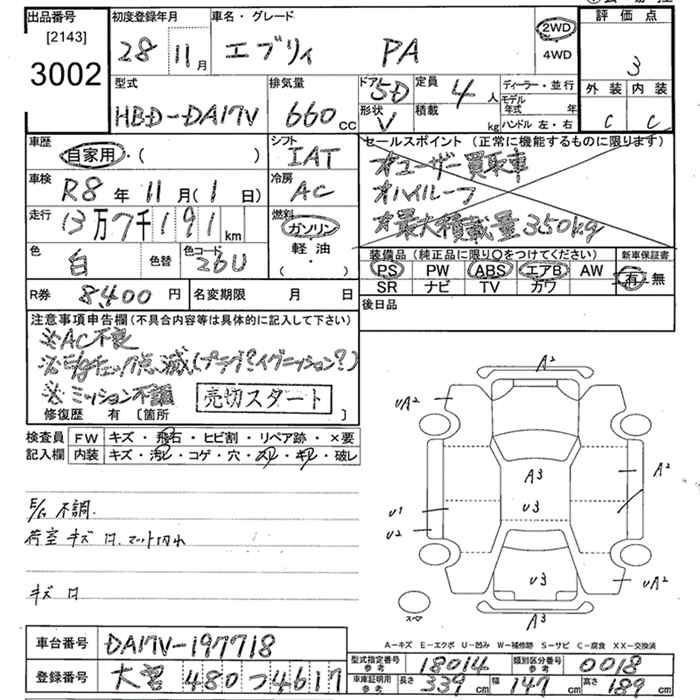 出品番号 [2143] 3002
初度登録年月 28 11月
車名・グレード エブリィ PA
2WD
4WD
評価点 3
外装 内装
C C
型式 HBD-DA17V
排気量 660cc
ドア 5D
形状 V
定員 4人
積載 kg
ディーラー・並行
モデル年式 年
ハンドル 左・右
車歴 自家用・( )
シフト IAT
車検 R8年11月(1日)
冷房 AC
走行 13万7千191km
燃料 ガソリン
軽油
( ・ )
色 白 色替 色コード 26U
R券 8,400円 名変期限 月 日
セールスポイント (正常に機能するものに限ります)
☆ユーザー買取車
☆ハイルーフ
☆最大積載量350kg
装備品 (純正品に限り〇をつけてください)
PS PW ABS エアB AW
SR ナビ TV カワ
新車保証書
有・無
後日品
注意事項申告欄 (不具合内容等は具体的に記入して下さい)
※AC不良
※E/gチェック点滅(プラグ?イグニッション?)
※ミッション不調
売切スタート
修復歴 有 [箇所 ]
検査員 FW キズ・飛石・ヒビ割・リペア跡・×要
記入欄 内装 キズ・汚レ・コゲ・穴・スレ・キレ・破レ
E/G 不調.
荷室 キズ ロ.マット切れ
キズ ロ
A2
UA2
A3
A2
U3
U1
U2
U3
UA2
A3
スペア
A-キズ E-エクボ U-凹み W-補修跡 S-サビ C-腐食 XX-交換済
車台番号 DA17V-197718
登録番号 大宮 480 つ 4617
型式指定番号 参考 18014 類別区分番号 参考 0018
車庫証明用 参考 長さ 339cm 幅 147cm 高さ 189cm